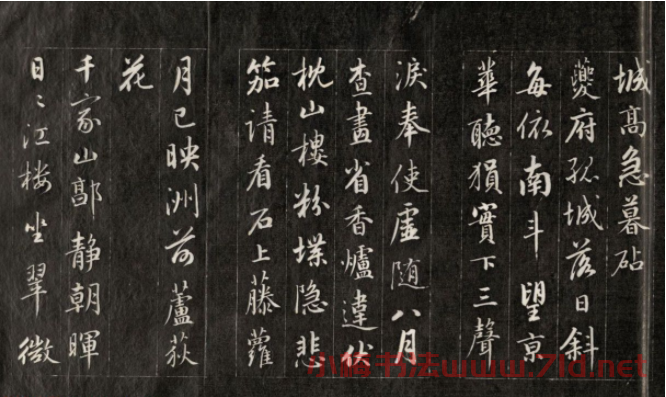 城高急暮砧
夔府孤城落日斜
每依南斗望京
華聽猿實下三聲
淚奉使虛随八月
查畫省香爐違伏
枕山樓粉堞隐悲
笳請看石上藤蘿
月已映洲前蘆荻
花
千家山郭静朝暉
日〻江楼坐翠微
小楠书法www.71d.net